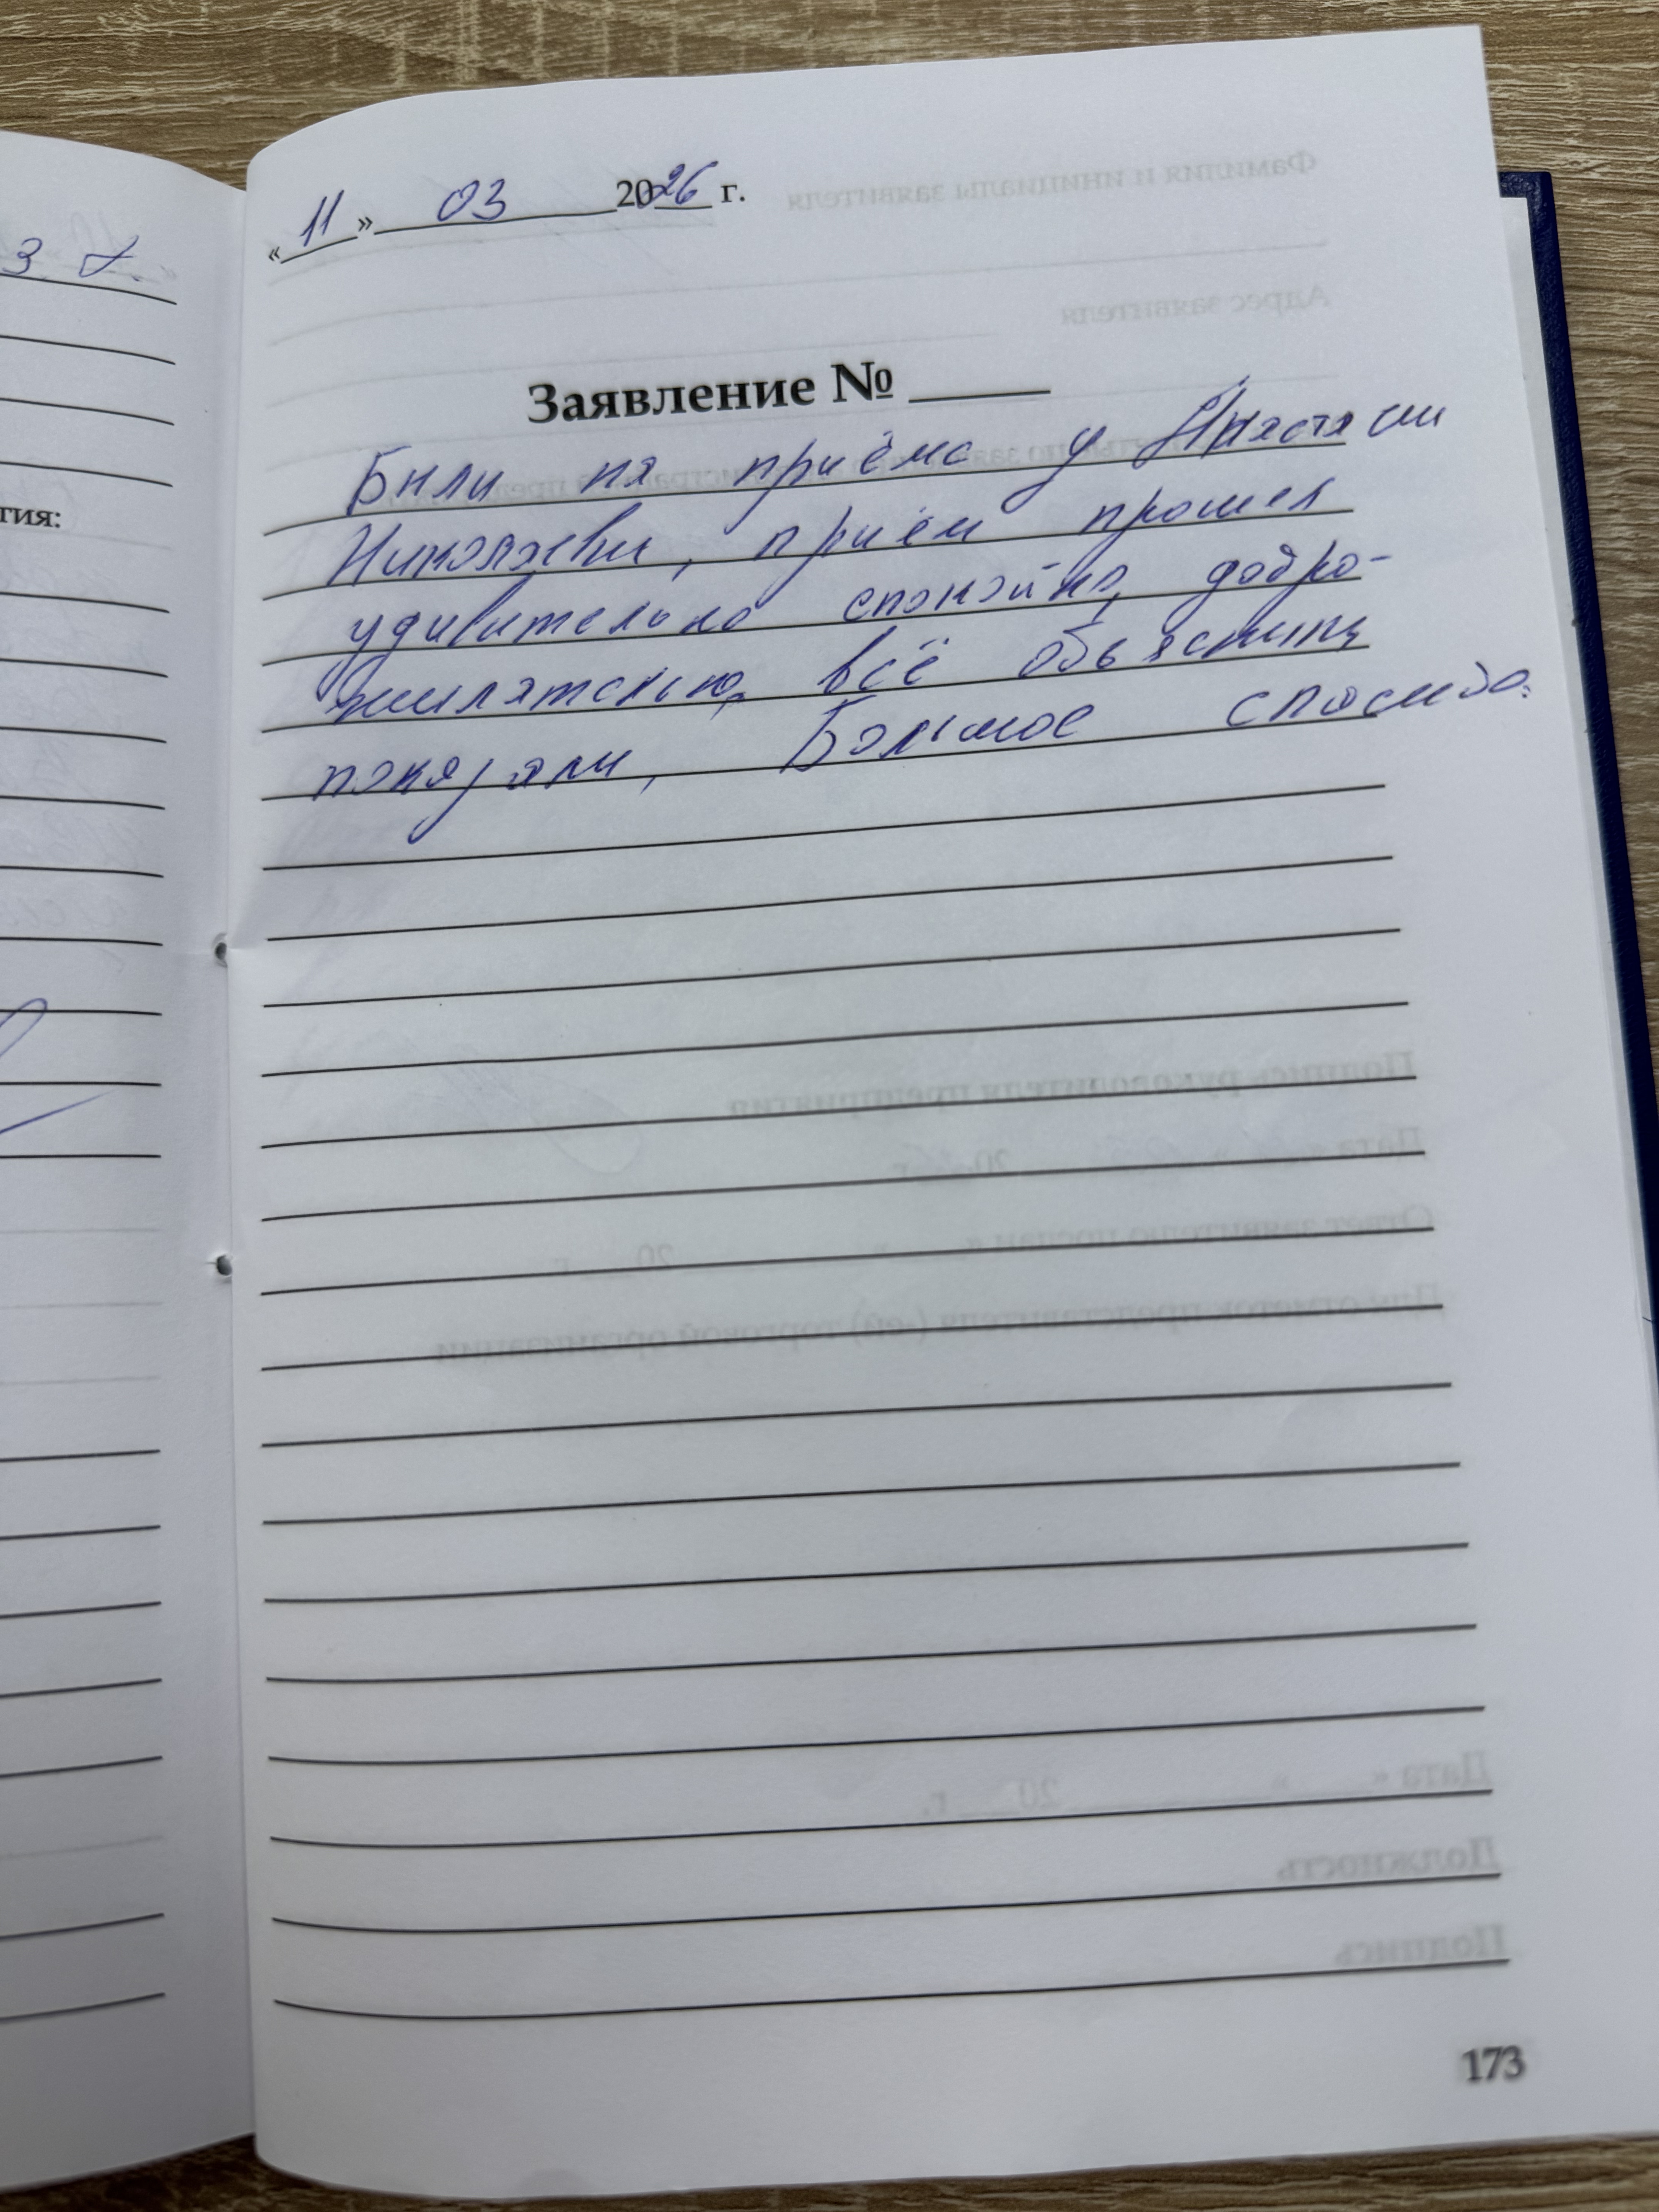 «11» 03 2026 г.
Заявление № ____
Были на приёме у Анастасии
Николаевны, приём прошел
удивительно спокойно, добро-
желательно, всё объяснили
показали, Большое спасибо.
173
3
тия: